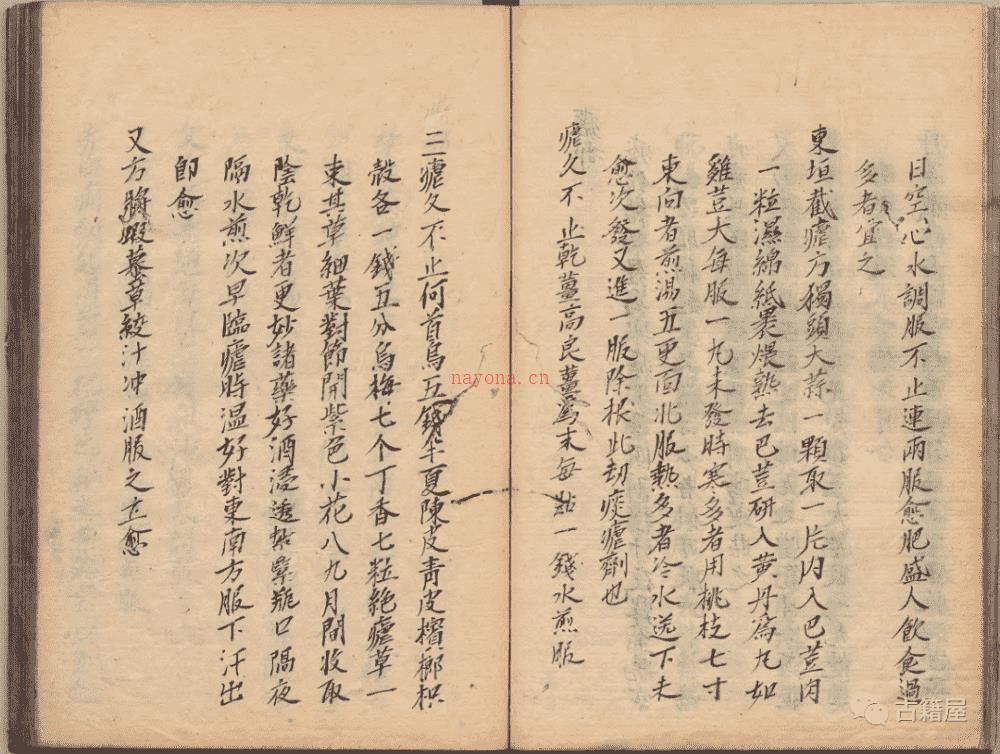 日空心水調服不止連兩服愈肥盛人飲食過
多者宜之
東垣截瘧方獨頭大蒜一顆取一片内入巴荳肉
一粒濕綿紙裹煨熟去巴荳研入黄丹爲丸如
雞荳大每服一丸未發時寒多者用桃枝七寸
東向者煎湯五更面北服熱多者冷水送下未
愈次發又進一服除根此劫痰瘧劑也
瘧久不止乾薑高良薑爲末每服一錢水煎服
三瘧久不止何首烏五錢半夏陳皮青皮檳榔枳
殼各一錢五分烏梅七个丁香七粒絶瘧草一
束其草細葉對節開紫色小花八九月間收取
陰乾鮮者更妙諸藥好酒浸透紮緊瓶口隔夜
隔水煎次早臨瘧時温好對東南方服下汗出
即愈
又方將蝦蟇草絞汁冲酒服之立愈
nayona.cn
古籍屋